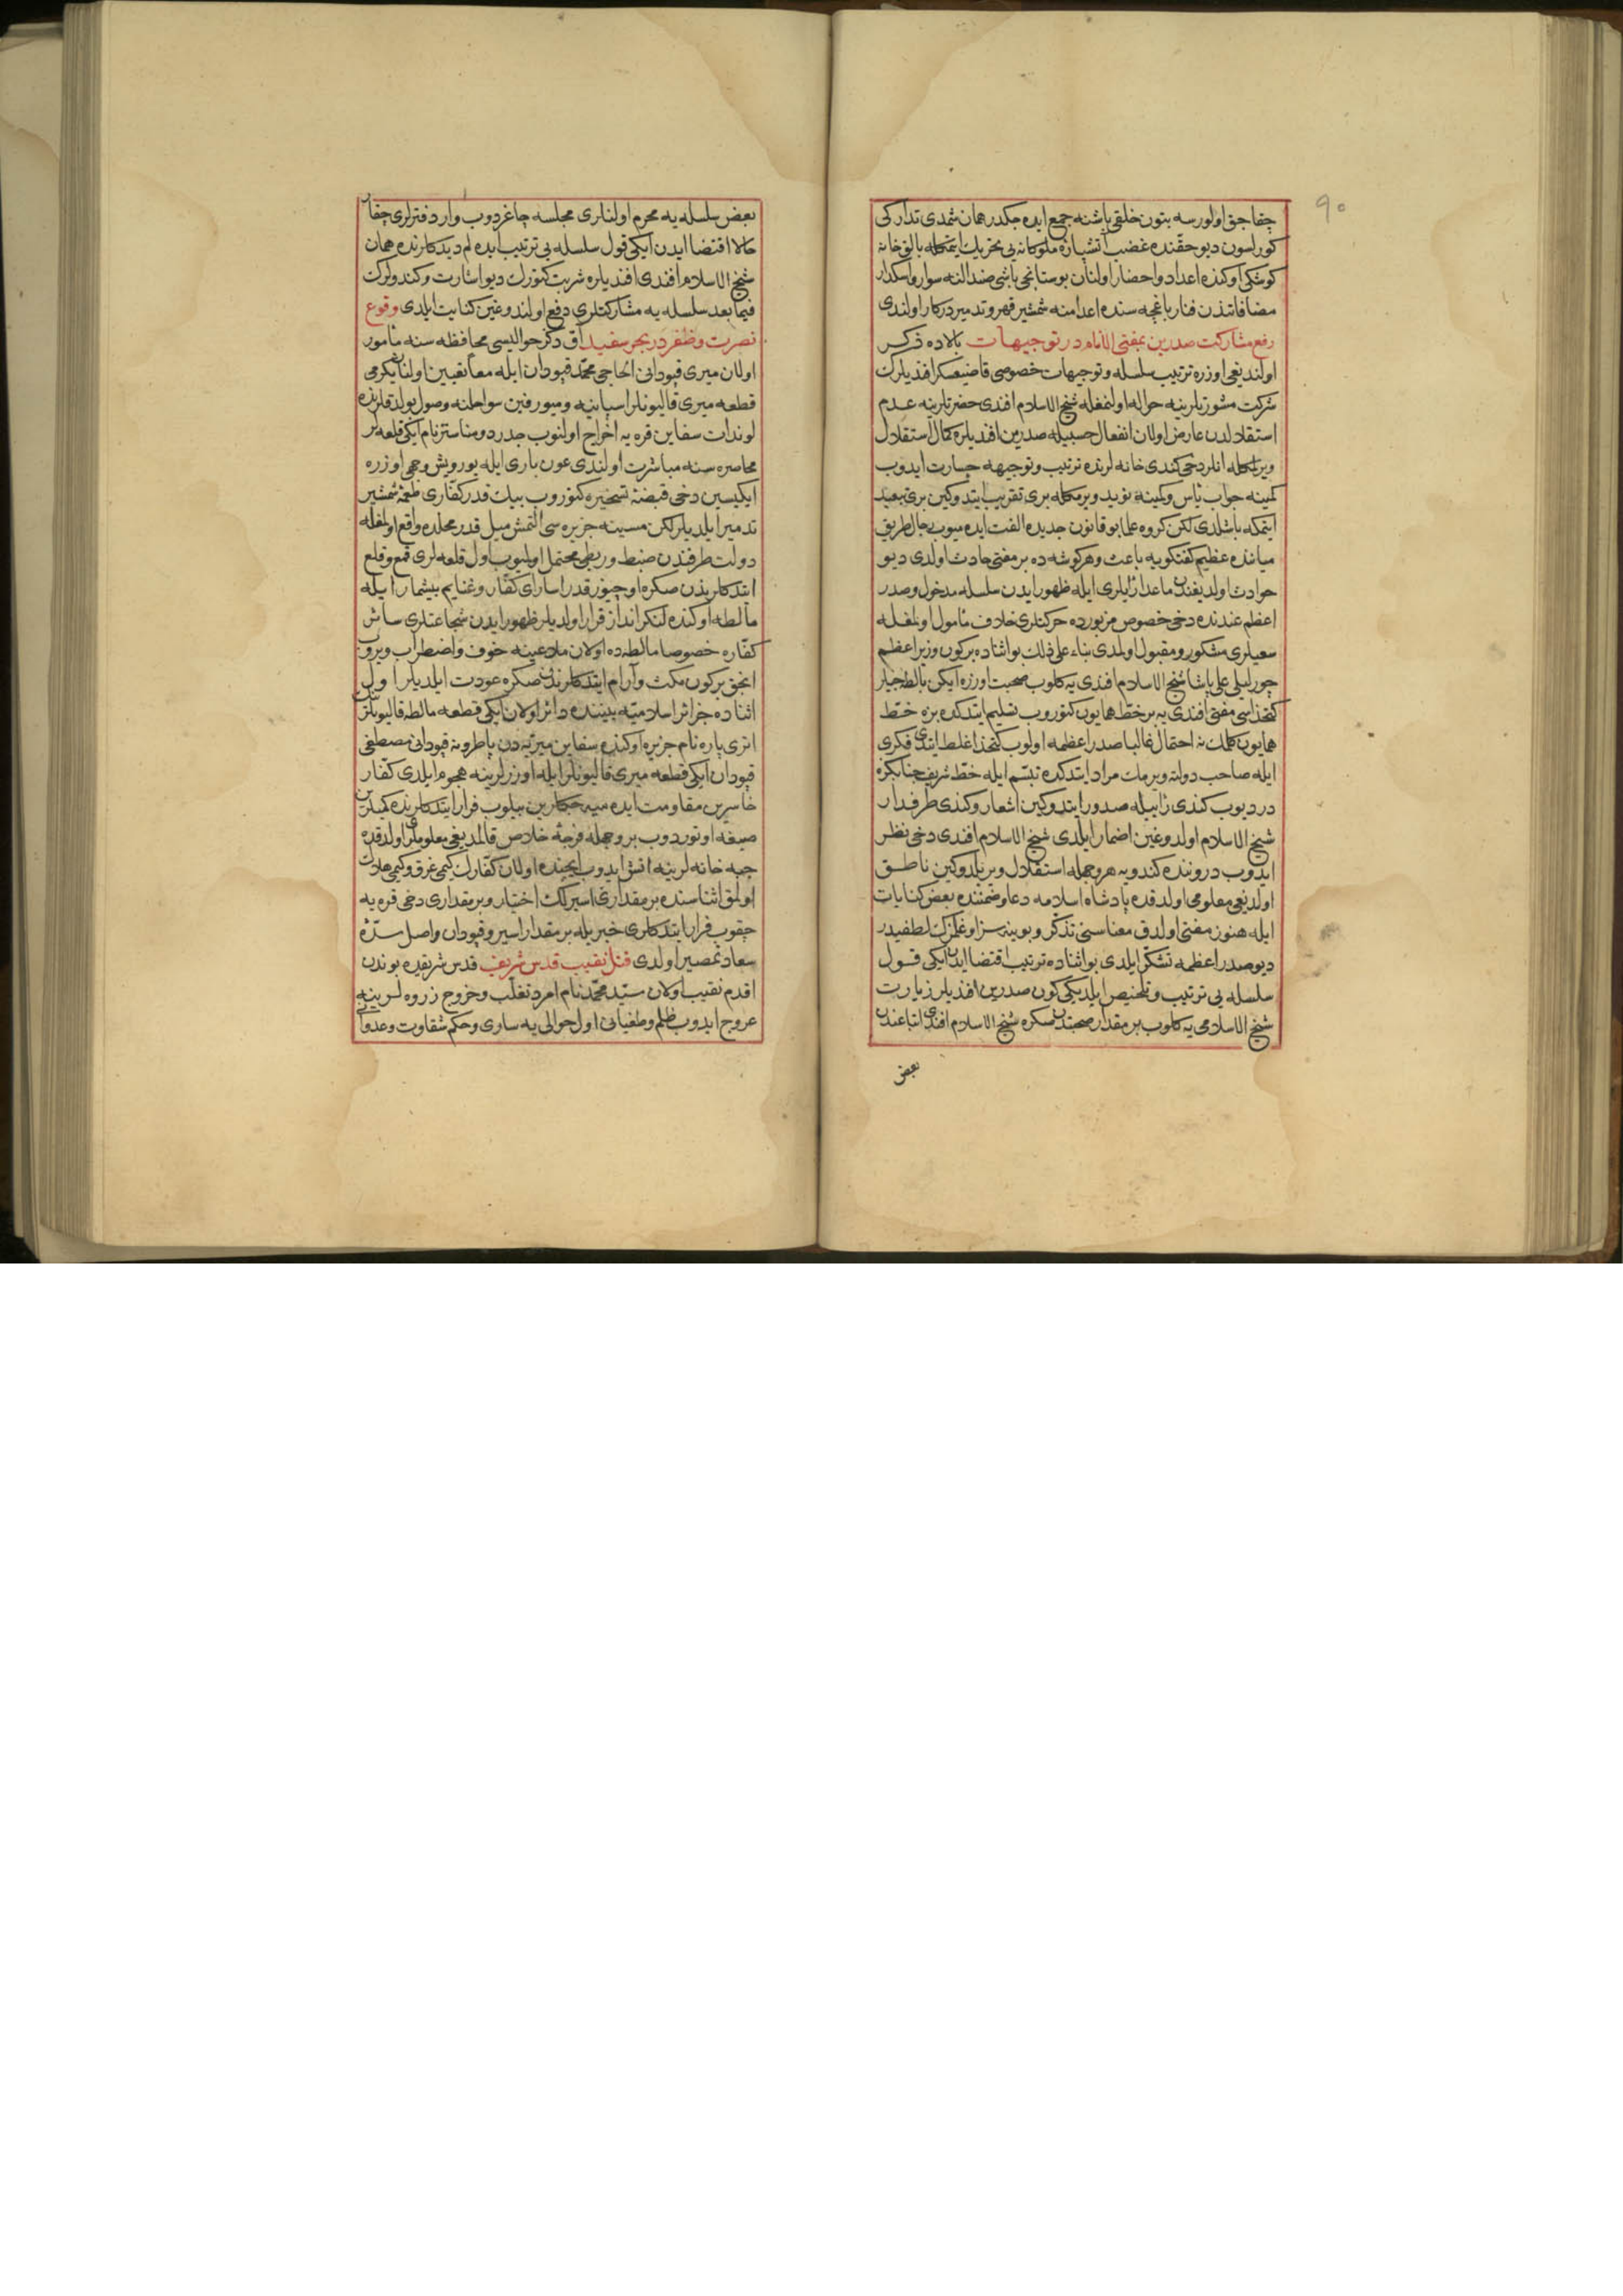 ٩٠
چقاجق اولورسه بتون خلقی باشنه جمع ایده جکدر همان شمدی تدارکی
کورلسون دیو حقنده غضب آتشپاره ملوکانه یی تحریك ایتمكله بالق خانه
کوشکی اوکنده اعداد و احضار اولنان بوستانجی باشی صندالنه سوار و اسکدار
مضافاتندن فنار باغچه سنده اعدامنه شمشیر قهر و تدمیر درکار اولندی
رفع مشارکت صدرین بمفتی الانام در توجیهات بالاده ذکر
اولندیغی اوزره ترتیب سلسله و توجیهات خصوصی قاضیعسکر افندیلرك
شرکت مشورتلرینه حواله اولنمغله شیخ الاسلام افندی حضرتلرینه عدم
استقلالدن عارض اولان انفعال حسبیله صدرین افندیلره کمال استقلال
ویرلمكله انلر دخی کندی خانه لرنده ترتیب و توجیهه جسارت ایدوب
کمینه جواب یأس و کمینه نوید ویرمكله بری تقریب ایتدوکین بری تبعید
ایتمکه باشلدی لکن کروه علما بو قانون جدیده الفت ایده میوب رجال طریق
میانده عظیم کفتکویه باعث و هر کوشه ده بر مفتی حادث اولدی دیو
حوادث اولدیغندن ماعدا رأیلری ایله ظهور ایدن سلسله مدخول و صدر
اعظم عندنده دخی خصوص مزبورده حرکتلری خلاف مأمول اولمغله
سعیلری مشکور و مقبول اولمدی بناء علی ذلك بو اثناده بر کون وزیر اعظم
چورلیلی علی پاشا شیخ الاسلام افندی یه کلوب صحبت اوزره ایکن بالطه جیلر
کتخداسی مفتی افندی یه بر خط همایون کتوروب تسلیم ایتدکده بزه خط
همایون کلمك نه احتمال غالبا صدر اعظمه اولوب کتخدا غلط ایتدی فکری
ایله صاحب دولته ویرمك مراد ایتدکده تبسم ایله خط شریف جنابکزه
در دیوب کندی رأییله صدور ایتدوکین اشعار و کندی طرفدار
شیخ الاسلام اولدوغین اضمار ایلدی شیخ الاسلام افندی دخی نظر
ایدوب دروننده کندویه هر وجهله استقلال ویرلدوکین ناطق
اولدیغی معلومی اولدقده پادشاه اسلامه دعا و ضمننده بعض کنایات
ایله هنوز مفتی اولدق معناسنی تذکر و بو بنده سزاوغلکزك لطفیدر
دیو صدر اعظمه تشکر ایلدی بو اثناده ترتیب اقتضا ایدن ایکی قول
سلسله یی ترتیب و تلخیص ایلدیکی کون صدرین افندیلر زیارت
شیخ الاسلامی یه کلوب بر مقدار صحبتدن صکره شیخ الاسلام افندی اتباعندن
بعض
بعض سلسله یه محرم اولنلری مجلسه چاغردوب وار دفترلری چقار
حالا اقتضا ایدن ایکی قول سلسله یی ترتیب ایده لم دیدکلرنده همان
شیخ الاسلام افندی افندیلره شربت کتورك دیو اشارت و کندولرك
فیما بعد سلسله یه مشارکتلری دفع اولندوغین کنایت ایلدی وقوع
نصرت و ظفر در بحر سفید آق دکز حوالیسی محافظه سنه مأمور
اولان میری قپودانی الحاجی محمد قپودان ایله معا تعیین اولنان یکرمی
قطعه میری قالیونلر اسپانیه و میورقین سواحلنه وصول بولدقلرنده
لوندات سفاین قره یه اخراج اولنوب جدرد و مناستر نام ایکی قلعه لر
محاصره سنه مباشرت اولندی عون باری ایله یورویش وجهی اوزره
ایکیسین دخی قبضهٔ تسخیره کتوروب بیك قدر کفاری طعمهٔ شمشیر
تدمیر ایلدیلر لکن مسینه جزیره سی التمش میل قدر محلده واقع اولمغله
دولت طرفندن ضبط و ربطی محتمل اولمیوب اول قلعه لری قمع و قلع
ایتدکلرندن صکره اوچیوز قدر اسارای کفار و غنایم بیشمار ایله
مالطه اوکنده لنکر انداز قرار اولدیلر ظهور ایدن شجاعتلری سائر
کفاره خصوصا مالطه ده اولان ملاعینه خوف و اضطراب ویروب
انجق بر کون مکث و آرام ایتدکلرندن صکره عودت ایلدیلر اول
اثناده جزائر اسلامیه بیننده دائر اولان ایکی قطعه مالطه قالیونلرینك
انری پاره نام جزیره اوکنده سفاین میریه دن پاطرونه قپودانی مصطفی
قپودان ایکی قطعه میری قالیونلر ایله اوزرلرینه هجوم ایلدی کفار
خاسرین مقاومت ایده میه جکلرین بیلوب فرار ایتدکلرنده کمیلرین
صیغه اوتوردوب بر وجهله فرجهٔ خلاص قالمدیغی معلوملری اولدقده
جبه خانه لرینه اتش ایدوب ایچنده اولان کفارك کیمی غرق و کیمی هلاك
اولمق اثناسنده بر مقداری اسیرلك اختیار و بر مقداری دخی قره یه
چقوب فرار ایتدکلری خبریله بر مقدار اسیر و قپودان واصل سدهٔ
سعادتمصیر اولدی قتل نقیب قدس شریف قدس شریفده بوندن
اقدم نقیب اولان سید محمد نام امرد تغلب و خروج زروه لرینه
عروج ایدوب ظلم و طغیانی اول حوالی یه ساری و حکم شقاوت و عدوانی